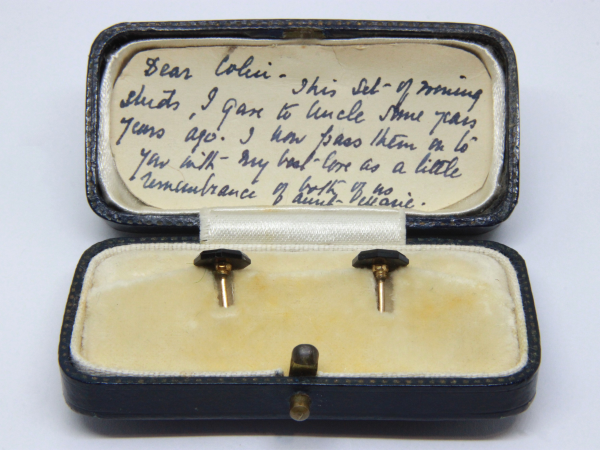 Dear Colin - This set of evening
studs, I gave to Uncle some years
years ago. I now pass them on to
you with - my best - love as a little
remembrance of both of us
Aunt